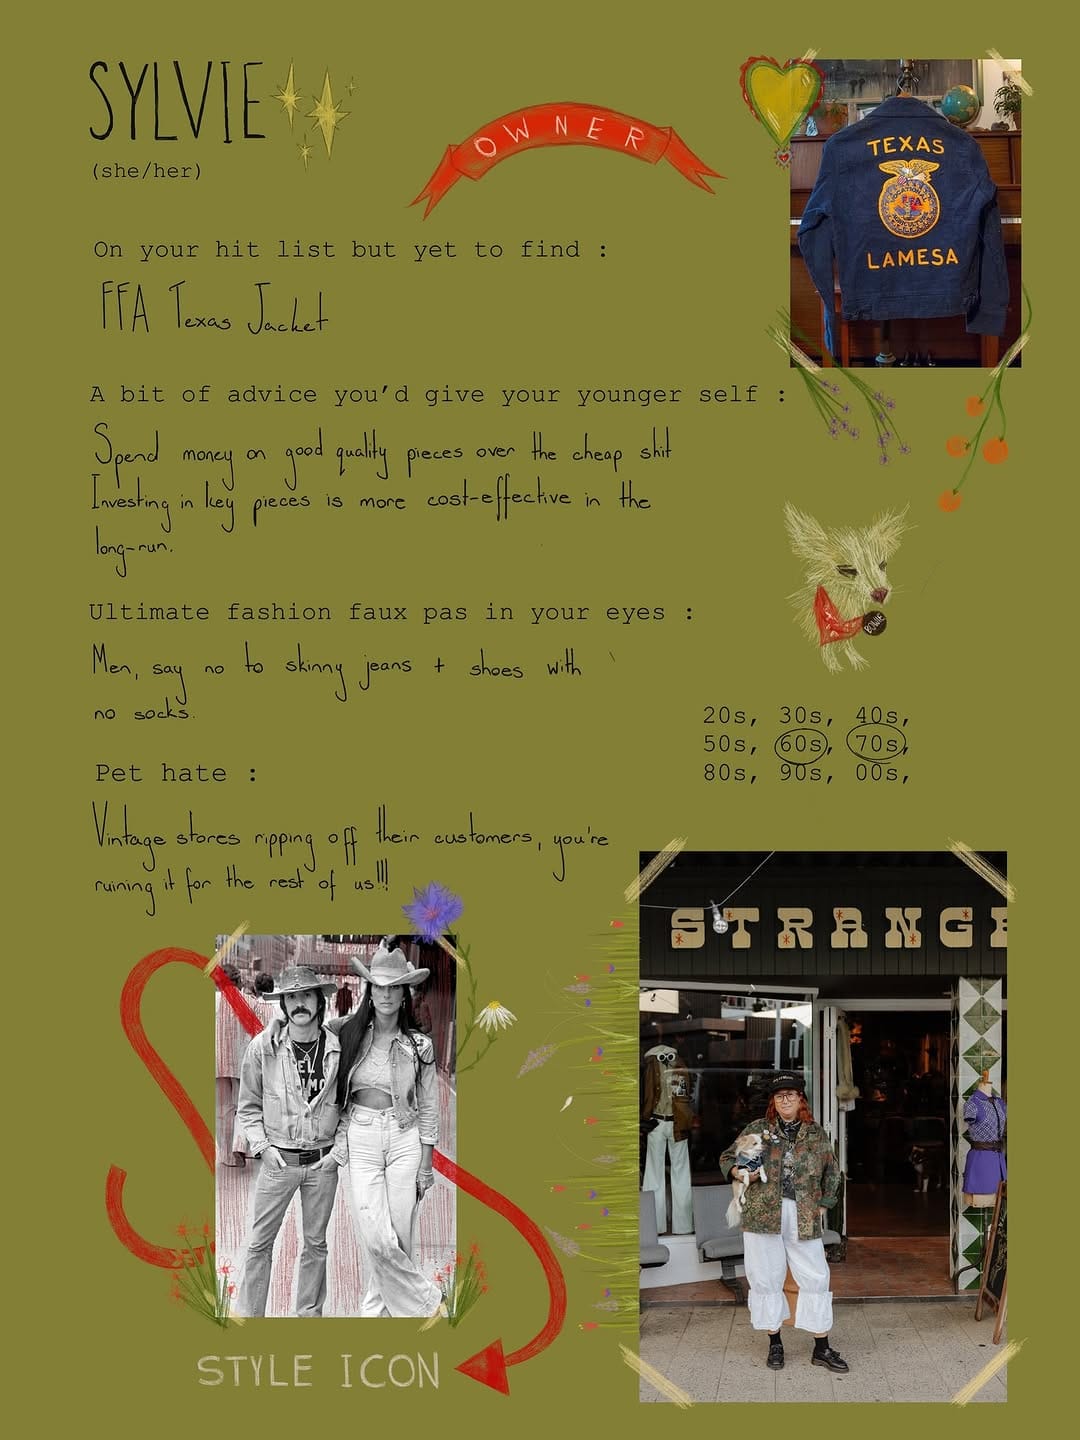 SYLVIE
(she/her)
OWNER
TEXAS
FFA
LAMESA
On your hit list but yet to find :
FFA Texas Jacket
A bit of advice you’d give your younger self :
Spend money on good quality pieces over the cheap shit
Investing in key pieces is more cost-effective in the
long-run.
Ultimate fashion faux pas in your eyes :
Men, say no to skinny jeans + shoes with
no socks.
BOWIE
20s, 30s, 40s,
50s, 60s, 70s,
80s, 90s, 00s,
Pet hate :
Vintage stores ripping off their customers, you're
ruining it for the rest of us!!!
STRANGE
STYLE ICON